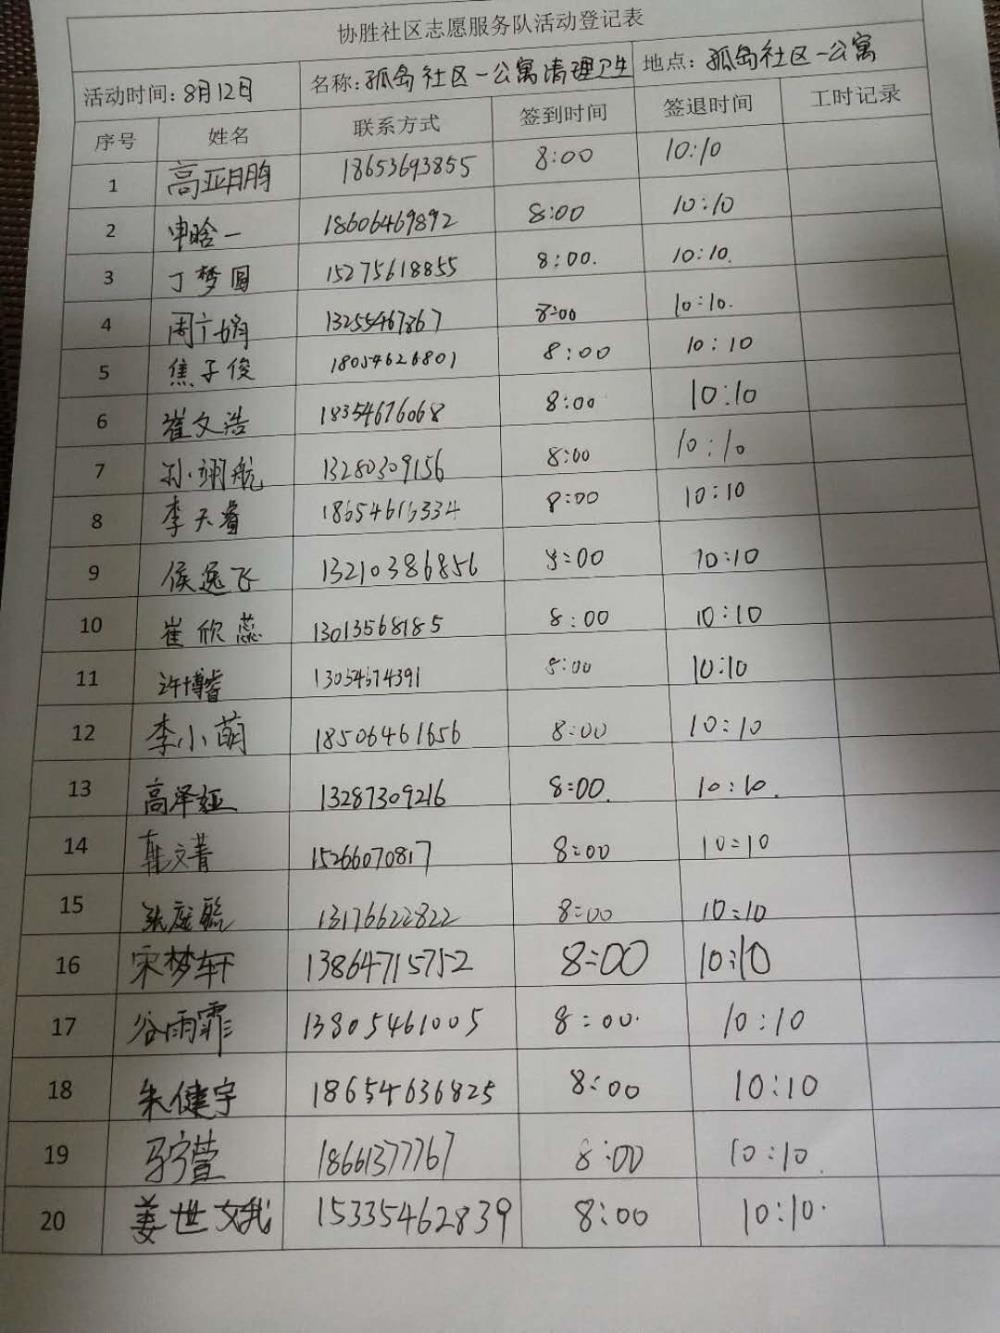 协胜社区志愿服务队活动登记表
活动时间:8月12日 名称:孤岛社区一公寓清理卫生 地点:孤岛社区一公寓
序号 姓名 联系方式 签到时间 签退时间 工时记录
1 高亚鹏 18653693855 8:00 10:10
2 申晗一 18606469892 8:00 10:10
3 丁梦圆 15275618855 8:00. 10:10.
4 周 13255467867 8:00 10:10.
5 焦子俊 18054626801 8:00 10:10
6 崔文浩 18354676068 8:00 10:10
7 孙翊航 13280309156 8:00 10:10
8 李天睿 18654616334 8:00 10:10
9 侯逸飞 13210386856 8:00 10:10
10 崔欣蕊 13013568185 8:00 10:10
11 许博睿 13054674391 8:00 10:10
12 李小萌 18506461656 8:00 10:10
13 高泽娅 13287309216 8:00. 10:10.
14 15266070817 8:00 10:10
15 13176622822 8:00 10:10
16 宋梦轩 13864715752 8:00 10:10
17 谷雨霏 13805461005 8:00. 10:10
18 朱健宇 18654636825 8:00 10:10
19 马宁萱 18661377767 8:00 10:10.
20 姜世 15335462839 8:00 10:10.